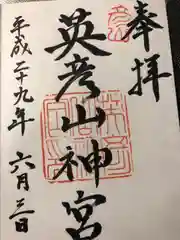 奉拝
英彦山神宮
平成二十九年
六月三日